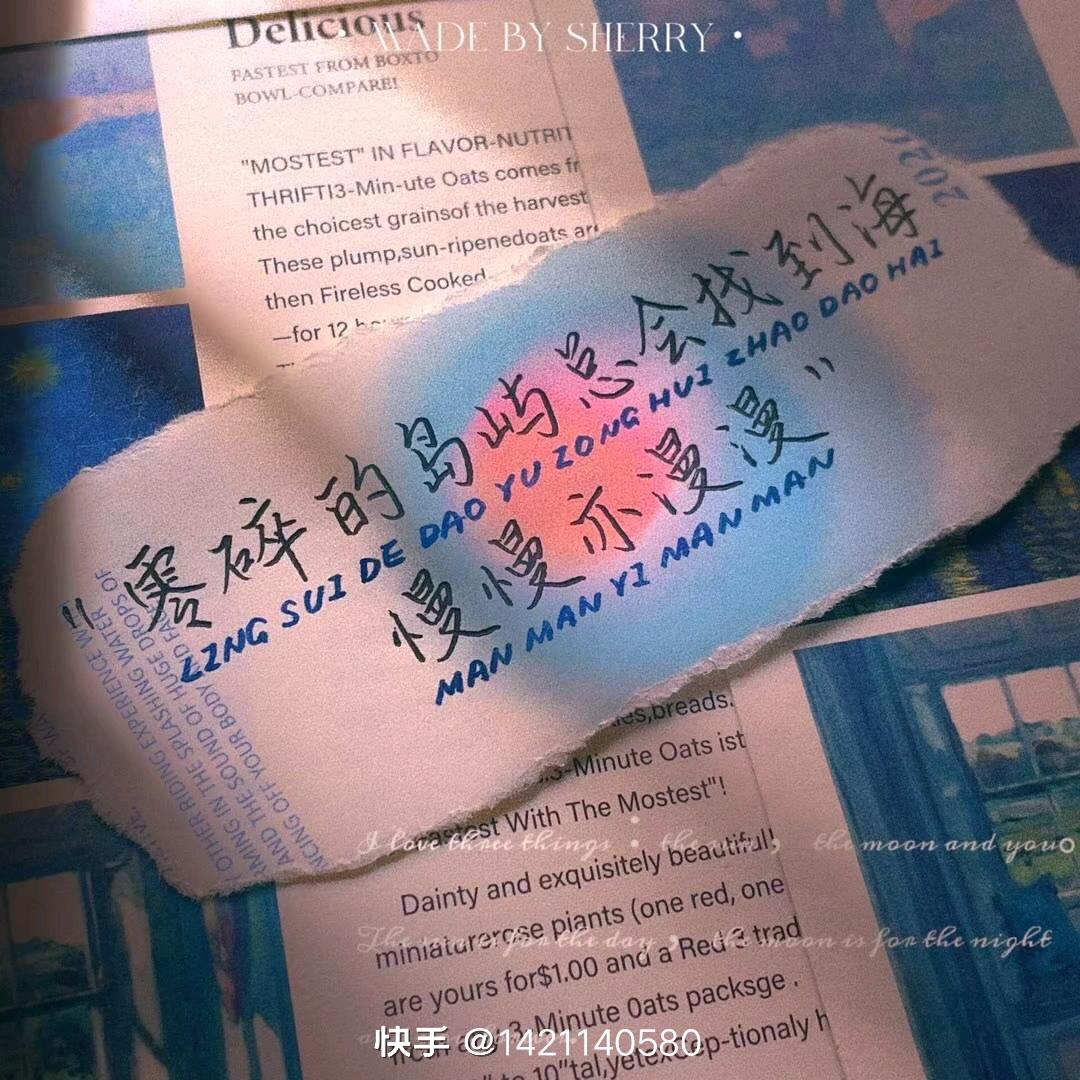 Delicious
• MADE BY SHERRY •
FASTEST FROM BOXTO
BOWL-COMPARE!
"MOSTEST" IN FLAVOR-NUTRIT
THRIFTI3-Min-ute Oats comes fr
the choicest grainsof the harvest
These plump,sun-ripenedoats are
then Fireless Cooked
—for 12 hours
2020
"零碎的岛屿总会找到海
LING SUI DE DAO YU ZONG HUI ZHAO DAO HAI
慢慢亦漫漫"
MAN MAN YI MAN MAN
OTHER RIDING EXPERIENCE W
RMING IN THE SPLASHING WATER
AND THE SOUND OF HUGE DROPS OF
NCING OFF YOUR BODY AND FAC
ies,breads.
3-Minute Oats ist
Fastest With The Mostest"!
I love three things · the sun, the moon and you。
Dainty and exquisitely beautiful!
miniaturerose piants (one red, one
The sun is for the day, the moon is for the night
are yours for$1.00 and a Red 't trad
3-Minute 0ats packsge .
快手 @1421140580
to 10"tal,yetexcep-tionaly h